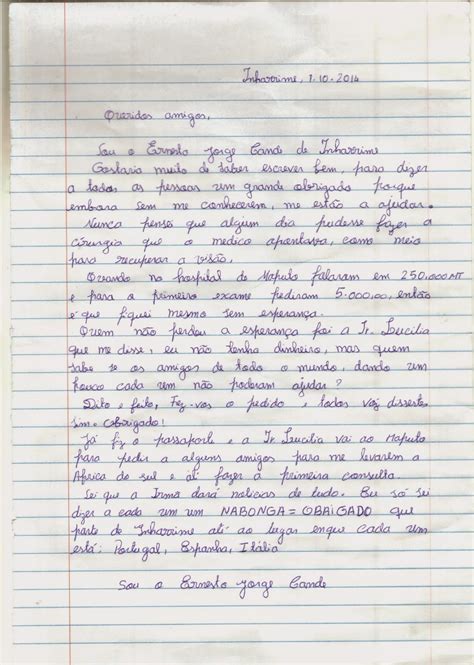 Inharrime, 1.10.2014
Queridos amigos,
Sou o Ernesto Jorge Cande de Inharrime
Gostaria muito de saber escrever bem, para dizer
a todas as pessoas um grande obrigado porque
embora sem me conhecerem, me estão a ajudar.
Nunca pensei que algum dia pudesse fazer a
cirurgia que o medico apontava, como meio
para recuperar a visão.
Quando no hospital de Maputo falaram em 250.000MT
e para o primeiro exame pediram 5.000,00, então
é que fiquei mesmo sem esperança.
Quem não perdeu a esperança foi a Ir. Lucilia
que me disse, eu não tenho dinheiro, mas quem
sabe se os amigos de todo o mundo, dando um
pouco cada um não poderam ajudar?
Dito e feito, Fez-vos o pedido e todos vos disserte
sim. Obrigado!
Já fiz o passaporte e a Ir Lucilia vai ao Maputo
para pedir a alguns amigos para me levarem a
Africa do sul e ali fazer a primeira consulta.
Sei que a Irmã dará noticias de tudo. Eu só sei
dizer a cada um um NABONGA = OBRIGADO que
parte de Inharrime até ao lugar enque cada um
está: Portugal, Espanha, Itália
Sou o Ernesto Jorge Cande